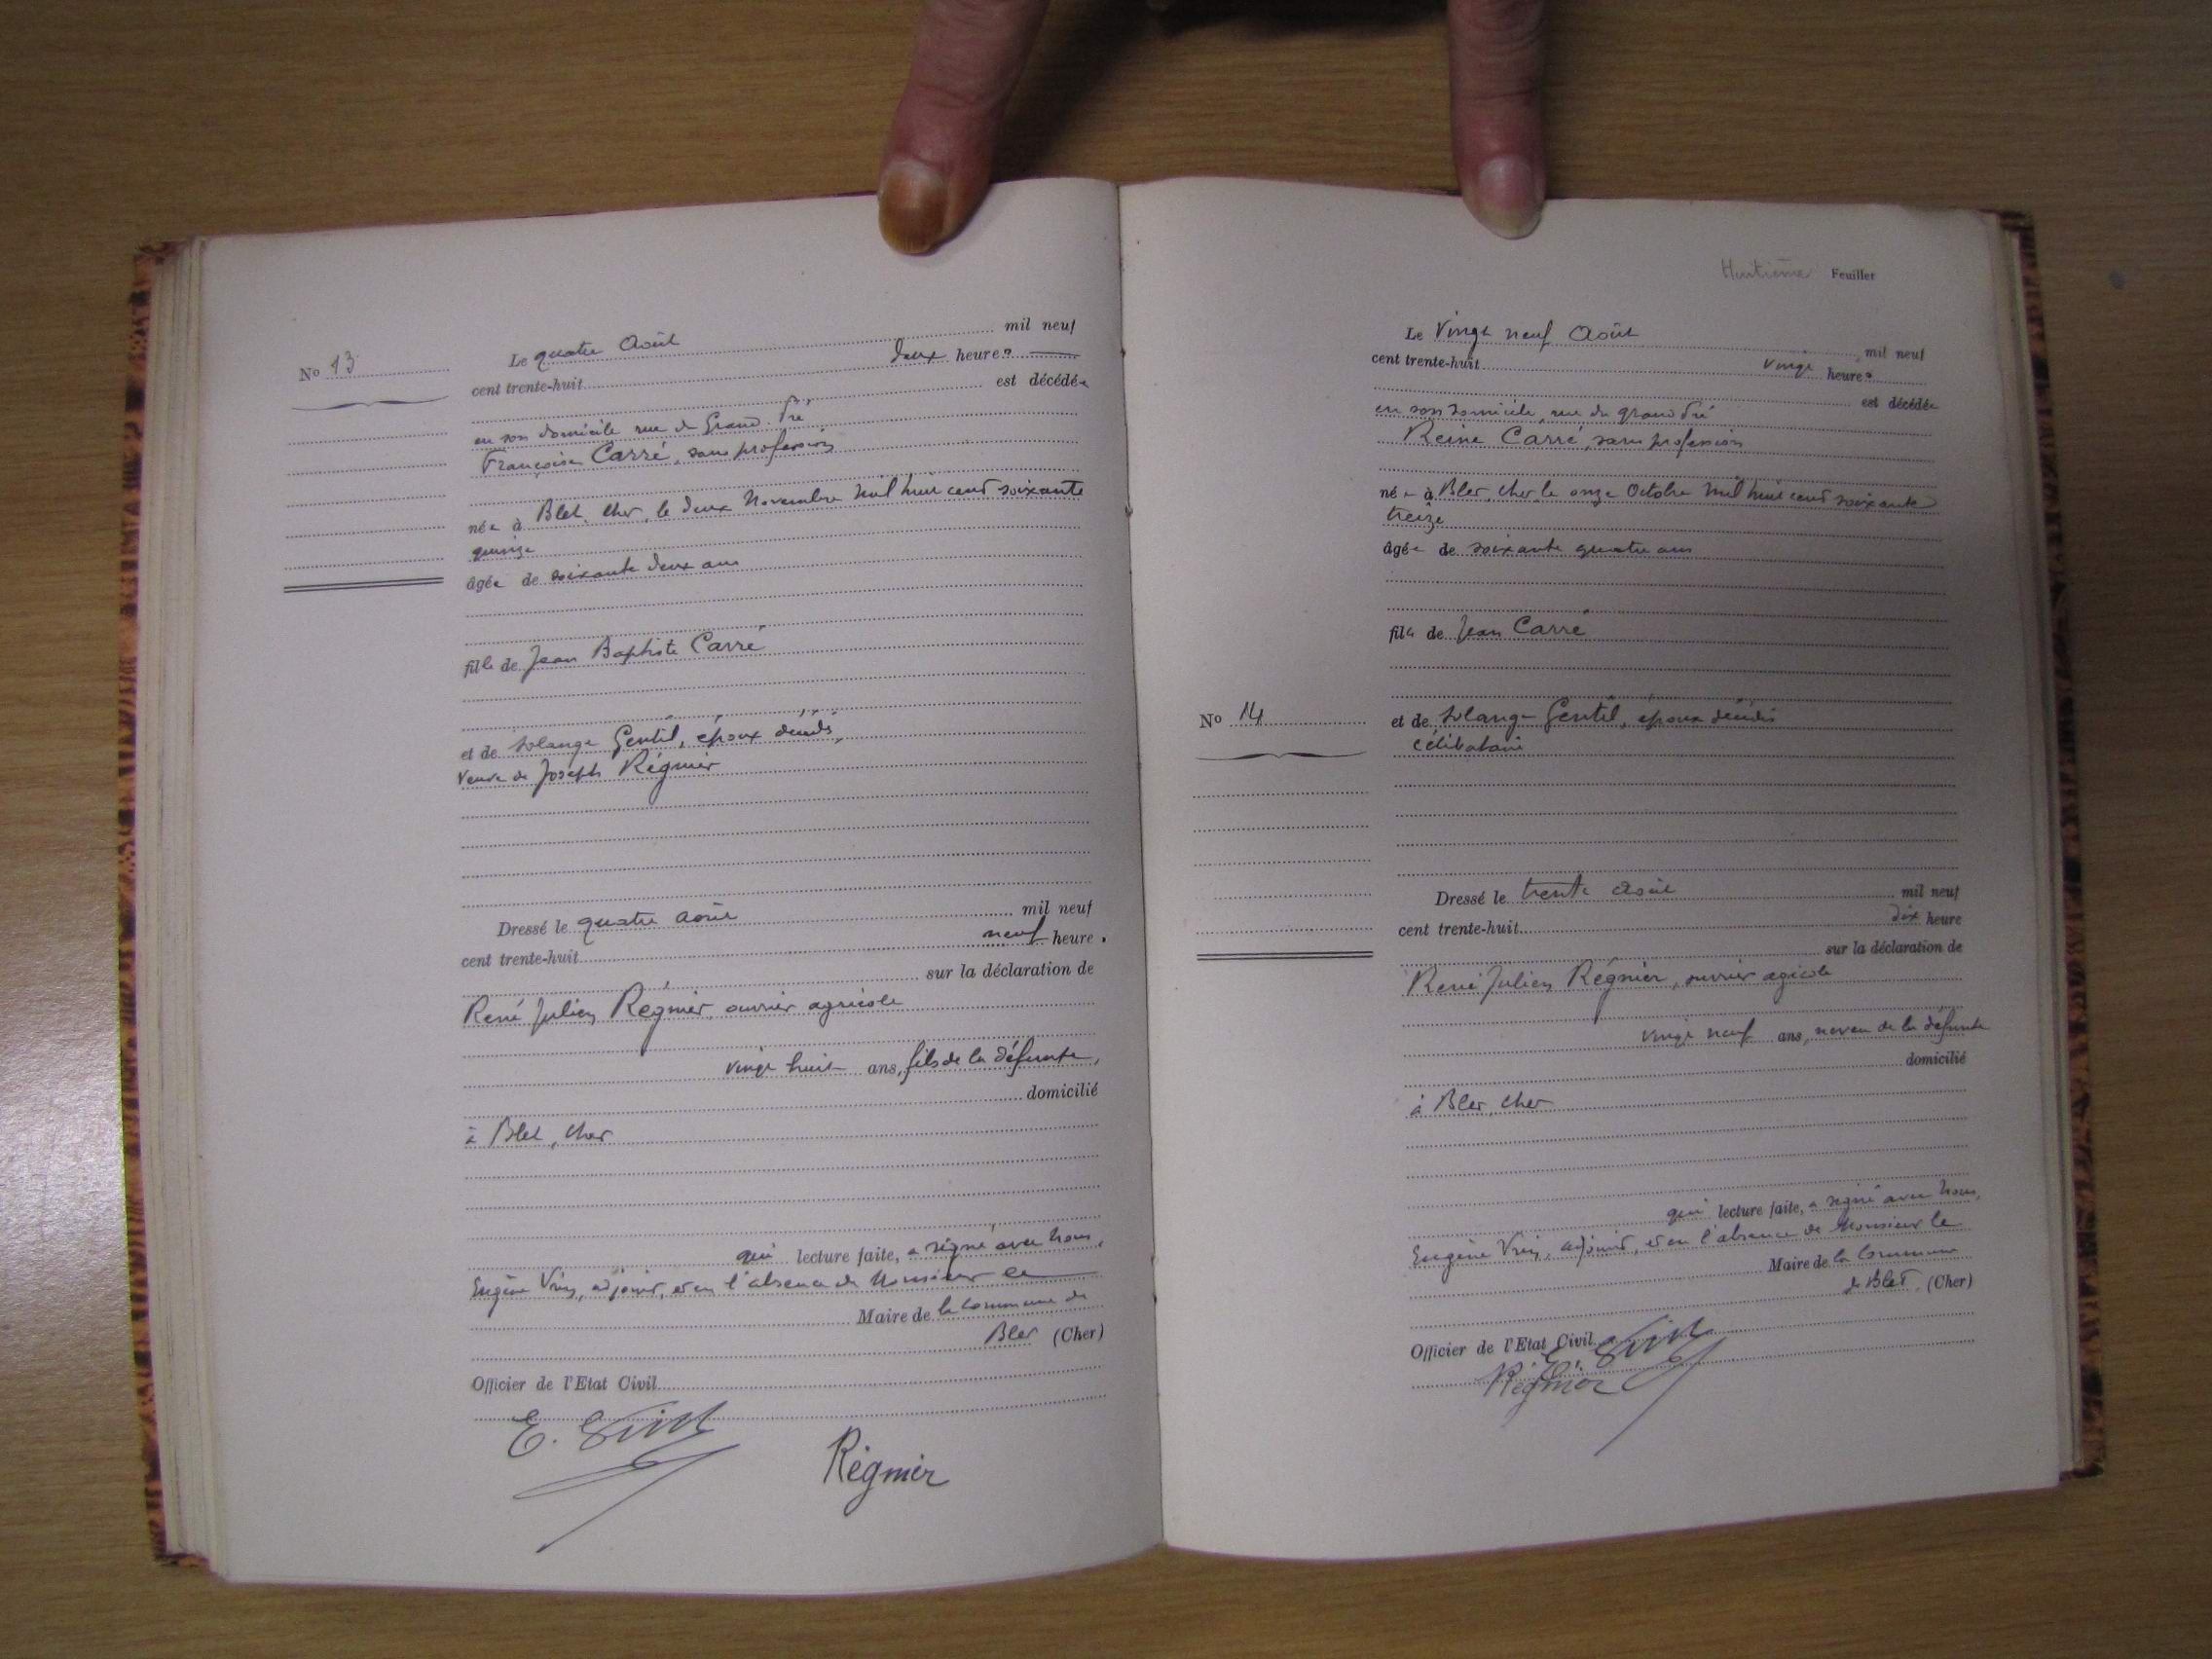 Le quatre Août mil neuf
No 13
cent trente-huit deux heures
est décédée
en son domicile rue du Grand Pré
Françoise Carré, sans profession
née à Blet, Cher, le deux Novembre mil huit cent soixante
quinze
âgée de soixante deux ans
fille de Jean Baptiste Carré
et de Solange Gentil, époux décédés,
Veuve de Joseph Régnier
Dressé le quatre août mil neuf
cent trente-huit neuf heures
sur la déclaration de
René Julien Régnier, ouvrier agricole
vingt huit ans, fils de la défunte,
domicilié
à Blet, Cher
qui lecture faite, a signé avec nous,
Eugène adjoint, et en l'absence de Monsieur le
Maire de la Commune de
Blet (Cher)
Officier de l'Etat Civil
E.
Régnier
Huitième Feuillet
Le Vingt neuf Août mil neuf
cent trente-huit vingt heures
est décédée
en son domicile, rue du grand Pré
Reine Carré, sans profession
née à Blet, Cher, le onze Octobre mil huit cent soixante
treize
âgée de soixante quatre ans
fille de Jean Carré
No 14
et de Solange Gentil, époux décédés
célibataire
Dressé le trente Août mil neuf
cent trente-huit dix heure
sur la déclaration de
René Julien Régnier, ouvrier agricole
vingt neuf ans, neveu de la défunte
domicilié
à Blet, Cher
qui lecture faite, a signé avec nous,
Eugène adjoint, et en l'absence de Monsieur le
Maire de la Commune
de Blet (Cher)
Officier de l'Etat Civil
E.
Régnier